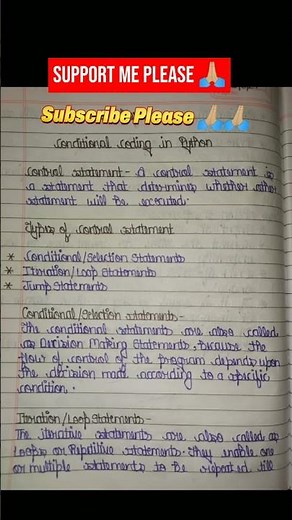 SUPPORT ME PLEASE 🙏🏼
Subscribe Please 🙏🏼🙏🏼
Conditional Coding in Python
Control statement - A control statement is
a statement that determines whether other
statement will be executed.
Types of control statement
* Conditional/Selection Statements
* Iteration/Loop Statements
* Jump Statements
Conditional/Selection statements -
The conditional statements are also called
as Decision Making Statements, because the
flow of control of the program depends upon
the decision made according to a specific
condition.
Iteration/Loop Statements -
The iterative statements are also called as
Loops or Repetitive statements. They enable one
or multiple statements to be repeated till